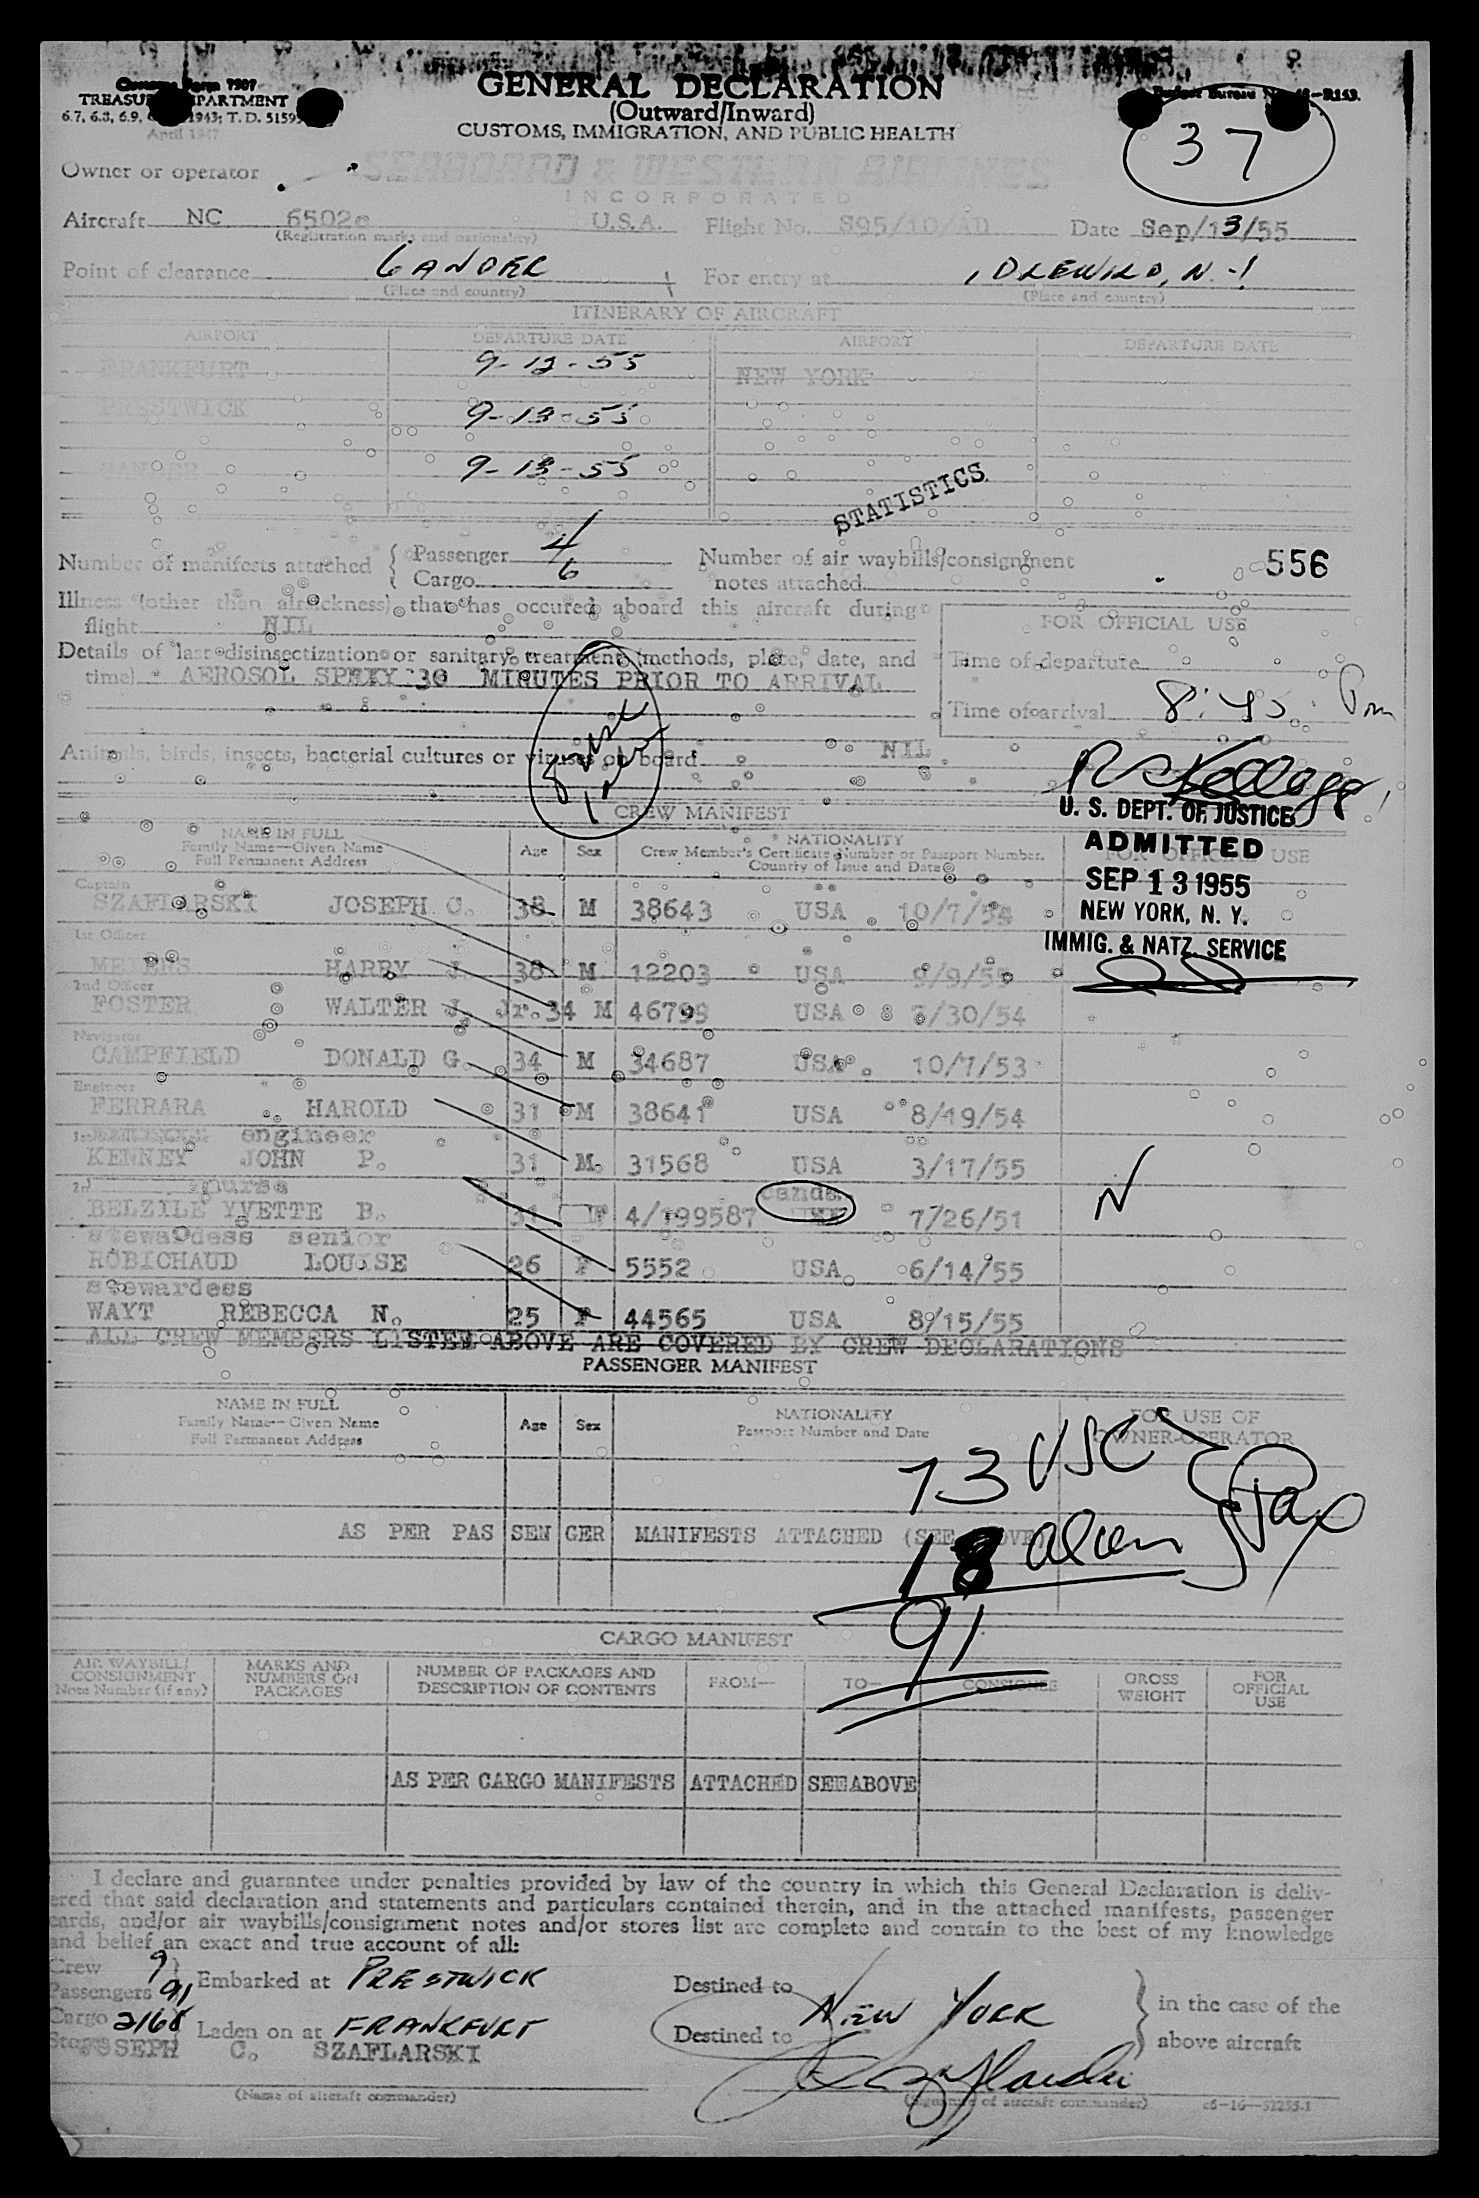 Customs Form 7507
TREASURY DEPARTMENT
6.7, 6.8, 6.9, 1943; T. D. 5159
April 1947
GENERAL DECLARATION
(Outward/Inward)
CUSTOMS, IMMIGRATION, AND PUBLIC HEALTH
37
Owner or operator SEABOARD & WESTERN AIRLINES
INCORPORATED
Aircraft NC 6502c U.S.A. Flight No. S95/10/AD Date Sep/13/55
(Registration marks and nationality)
Point of clearance GANDER For entry at IDLEWILD, N.Y
(Place and country) (Place and country)
ITINERARY OF AIRCRAFT
AIRPORT DEPARTURE DATE AIRPORT DEPARTURE DATE
FRANKFURT 9-12-55 NEW YORK
PRESTWICK 9-13-55
GANDER 9-13-55
STATISTICS
Number of manifests attached { Passenger 4
Cargo 6
Number of air waybills/consignment
notes attached 556
Illness (other than airsickness) that has occured aboard this aircraft during
flight NIL
Details of last disinsectization or sanitary treatment (methods, place, date, and
time) AEROSOL SPRAY 30 MINUTES PRIOR TO ARRIVAL
FOR OFFICIAL USE
Time of departure
Time of arrival 8:45 Pm
Animals, birds, insects, bacterial cultures or viruses on board NIL
RS Kellogg
U. S. DEPT. OF JUSTICE
ADMITTED
SEP 13 1955
NEW YORK, N. Y.
IMMIG. & NATZ. SERVICE
CREW MANIFEST
NAME IN FULL
Family Name—Given Name
Full Permanent Address
Age Sex
NATIONALITY
Crew Member's Certificate Number or Passport Number.
Country of Issue and Date
FOR OFFICIAL USE
Captain
SZAFLARSKI JOSEPH C. 38 M 38643 USA 10/7/54
1st Officer
MEIERS HARRY J. 38 M 12203 USA 9/9/55
2nd Officer
FOSTER WALTER J. Jr. 34 M 46799 USA /30/54
Navigator
CAMPFIELD DONALD G. 34 M 34687 USA 10/7/53
Engineer
FERRARA HAROLD 31 M 38641 USA 8/19/54
engineer
KENNEY JOHN P. 31 M 31568 USA 3/17/55
nurse
BELZILE YVETTE B. 31 F 4/199587 canda 7/26/51
stewardess senior
ROBICHAUD LOUISE 26 F 5552 USA 6/14/55
stewardess
WAYT REBECCA N. 25 F 44565 USA 8/15/55
ALL CREW MEMBERS LISTED ABOVE ARE COVERED BY CREW DECLARATIONS
PASSENGER MANIFEST
NAME IN FULL
Family Name—Given Name
Full Permanent Address
Age Sex
NATIONALITY
Passport Number and Date
FOR USE OF
OWNER-OPERATOR
73 USC
AS PER PAS SEN GER MANIFESTS ATTACHED (SEE ABOVE
18 alien
Pax
91
CARGO MANIFEST
AIR WAYBILL/
CONSIGNMENT
Note Number (if any)
MARKS AND
NUMBERS ON
PACKAGES
NUMBER OF PACKAGES AND
DESCRIPTION OF CONTENTS
FROM—
TO—
CONSIGNEE
GROSS
WEIGHT
FOR
OFFICIAL
USE
AS PER CARGO MANIFESTS ATTACHED SEE ABOVE
I declare and guarantee under penalties provided by law of the country in which this General Declaration is deliv-
ered that said declaration and statements and particulars contained therein, and in the attached manifests, passenger
cards, and/or air waybills/consignment notes and/or stores list are complete and contain to the best of my knowledge
and belief an exact and true account of all:
Crew 9
Passengers 91 } Embarked at PRESTWICK Destined to NEW YORK
Cargo 2168
Stores } Laden on at FRANKFURT Destined to
} in the case of the
above aircraft
JOSEPH C. SZAFLARSKI
(Name of aircraft commander) (Signature of aircraft commander) c6-16—52255-1